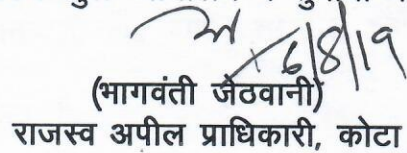 6/8/19
(भागवंती जेठवानी)
राजस्व अपील प्राधिकारी, कोटा